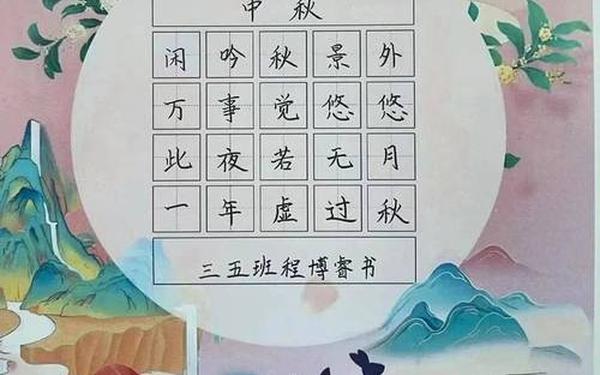 中秋
闲吟秋景外
万事觉悠悠
此夜若无月
一年虚过秋
三五班程博睿书